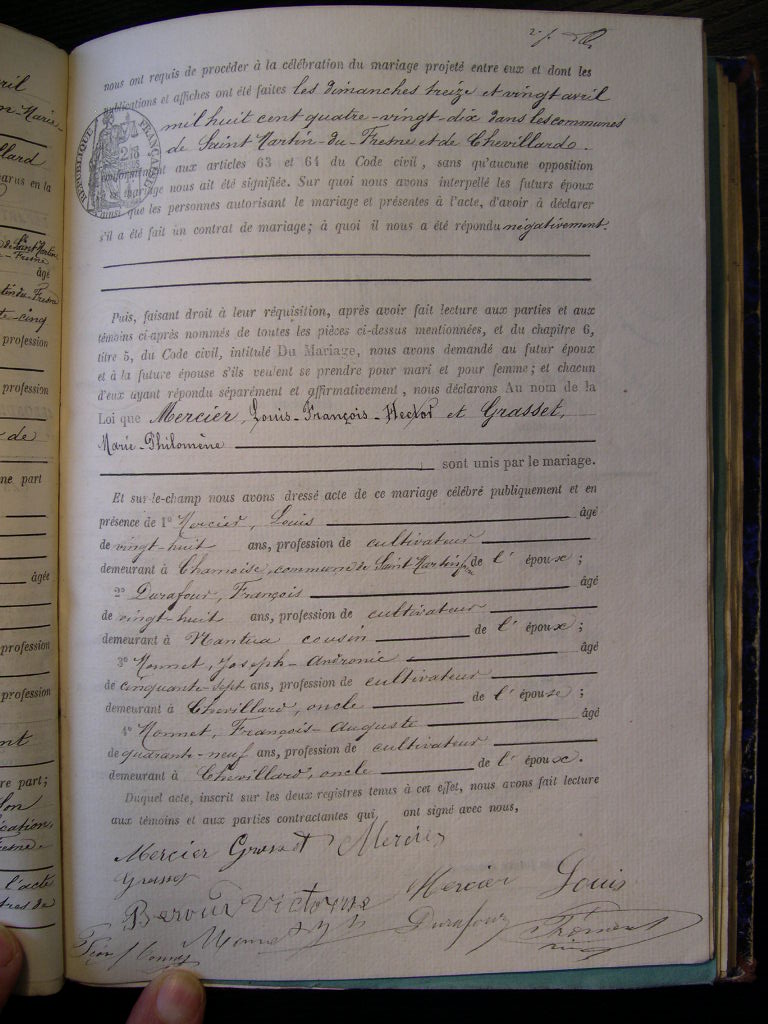 nous ont requis de procéder à la célébration du mariage projeté entre eux et dont les
publications et affiches ont été faites les dimanches treize et vingt avril
mil huit cent quatre-vingt-dix dans les communes
de Saint Martin-du-Fresne et de Chevillard.
conformément aux articles 63 et 64 du Code civil, sans qu'aucune opposition
mariage nous ait été signifiée. Sur quoi nous avons interpellé les futurs époux
ainsi que les personnes autorisant le mariage et présentes à l'acte, d'avoir à déclarer
s'il a été fait un contrat de mariage; à quoi il nous a été répondu négativement.
Puis, faisant droit à leur réquisition, après avoir fait lecture aux parties et aux
témoins ci-après nommés de toutes les pièces ci-dessus mentionnées, et du chapitre 6,
titre 5, du Code civil, intitulé Du Mariage, nous avons demandé au futur époux
et à la future épouse s'ils veulent se prendre pour mari et pour femme; et chacun
d'eux ayant répondu séparément et affirmativement, nous déclarons Au nom de la
Loi que Mercier, Louis-François-Hector et Grasset,
Marie-Philomène
sont unis par le mariage.
Et sur-le-champ nous avons dressé acte de ce mariage célébré publiquement et en
présence de 1° Mercier, Louis âgé
de vingt-huit ans, profession de cultivateur
demeurant à Chamoise, commune de Saint Martin de l'époux;
2° Durafour, François âgé
de vingt-huit ans, profession de cultivateur
demeurant à Nantua cousin de l'époux;
3° Monnet, Joseph-Andronic âgé
de cinquante-sept ans, profession de cultivateur
demeurant à Chevillard, oncle de l'épouse;
4° Monnet, François-Auguste âgé
de quarante-neuf ans, profession de cultivateur
demeurant à Chevillard, oncle de l'époux.
Duquel acte, inscrit sur les deux registres tenus à cet effet, nous avons fait lecture
aux témoins et aux parties contractantes qui ont signé avec nous,
Mercier Grasset Mercier
Grasset
Victorine Mercier Louis
Durafour